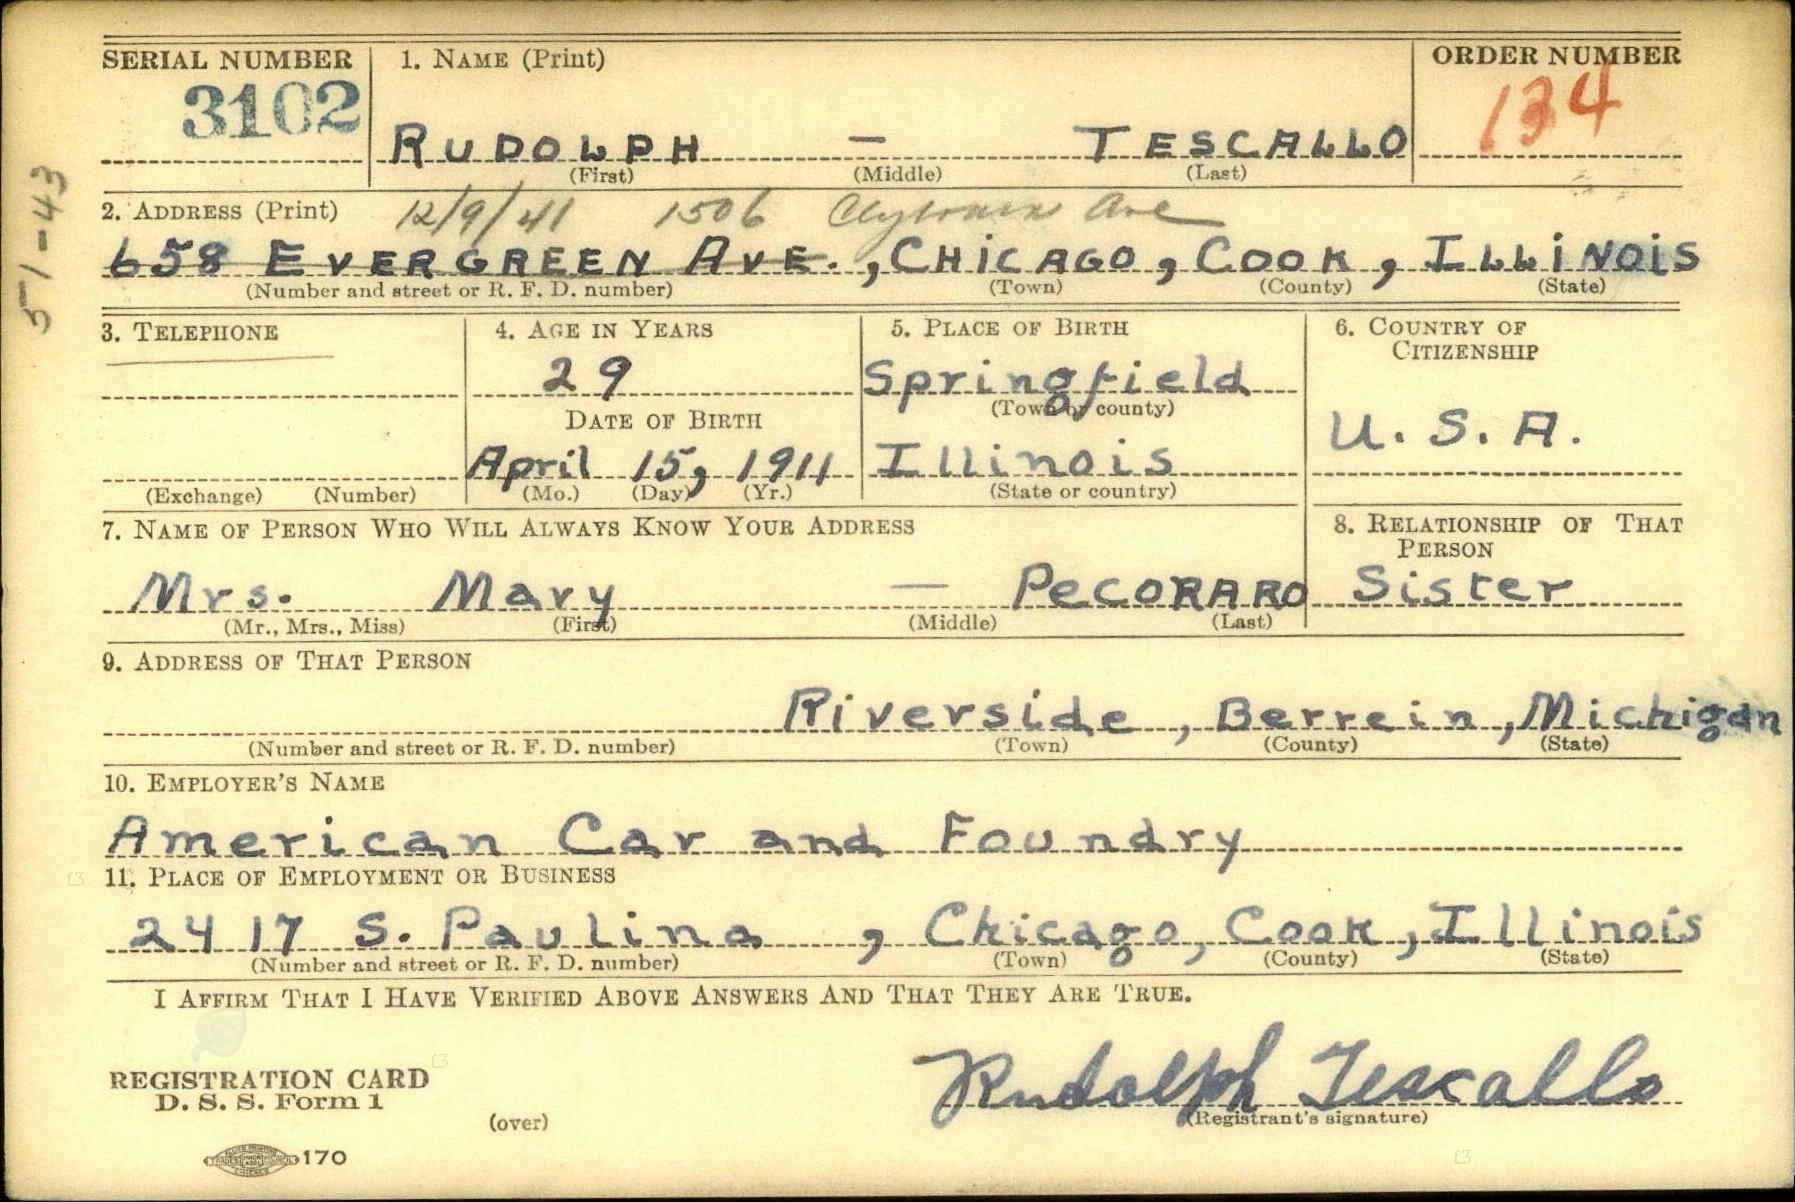 SERIAL NUMBER
3102
1. NAME (Print)
ORDER NUMBER
134
RUDOLPH — TESCALLO
(First) (Middle) (Last)
51-43
2. ADDRESS (Print) 12/9/41 1506 Clybourn Ave
658 EVERGREEN AVE., CHICAGO, COOK, ILLINOIS
(Number and street or R. F. D. number) (Town) (County) (State)
3. TELEPHONE
(Exchange) (Number)
4. AGE IN YEARS
29
DATE OF BIRTH
April 15, 1911
(Mo.) (Day) (Yr.)
5. PLACE OF BIRTH
Springfield
(Town or county)
Illinois
(State or country)
6. COUNTRY OF
CITIZENSHIP
U. S. A.
7. NAME OF PERSON WHO WILL ALWAYS KNOW YOUR ADDRESS
Mrs. Mary — PECORARO
(Mr., Mrs., Miss) (First) (Middle) (Last)
8. RELATIONSHIP OF THAT
PERSON
Sister
9. ADDRESS OF THAT PERSON
Riverside, Berrein, Michigan
(Number and street or R. F. D. number) (Town) (County) (State)
10. EMPLOYER'S NAME
American Car and Foundry
11. PLACE OF EMPLOYMENT OR BUSINESS
2417 S. Paulina, Chicago, Cook, Illinois
(Number and street or R. F. D. number) (Town) (County) (State)
I AFFIRM THAT I HAVE VERIFIED ABOVE ANSWERS AND THAT THEY ARE TRUE.
REGISTRATION CARD
D. S. S. Form 1
(over)
Rudolph Tescallo
(Registrant's signature)
170